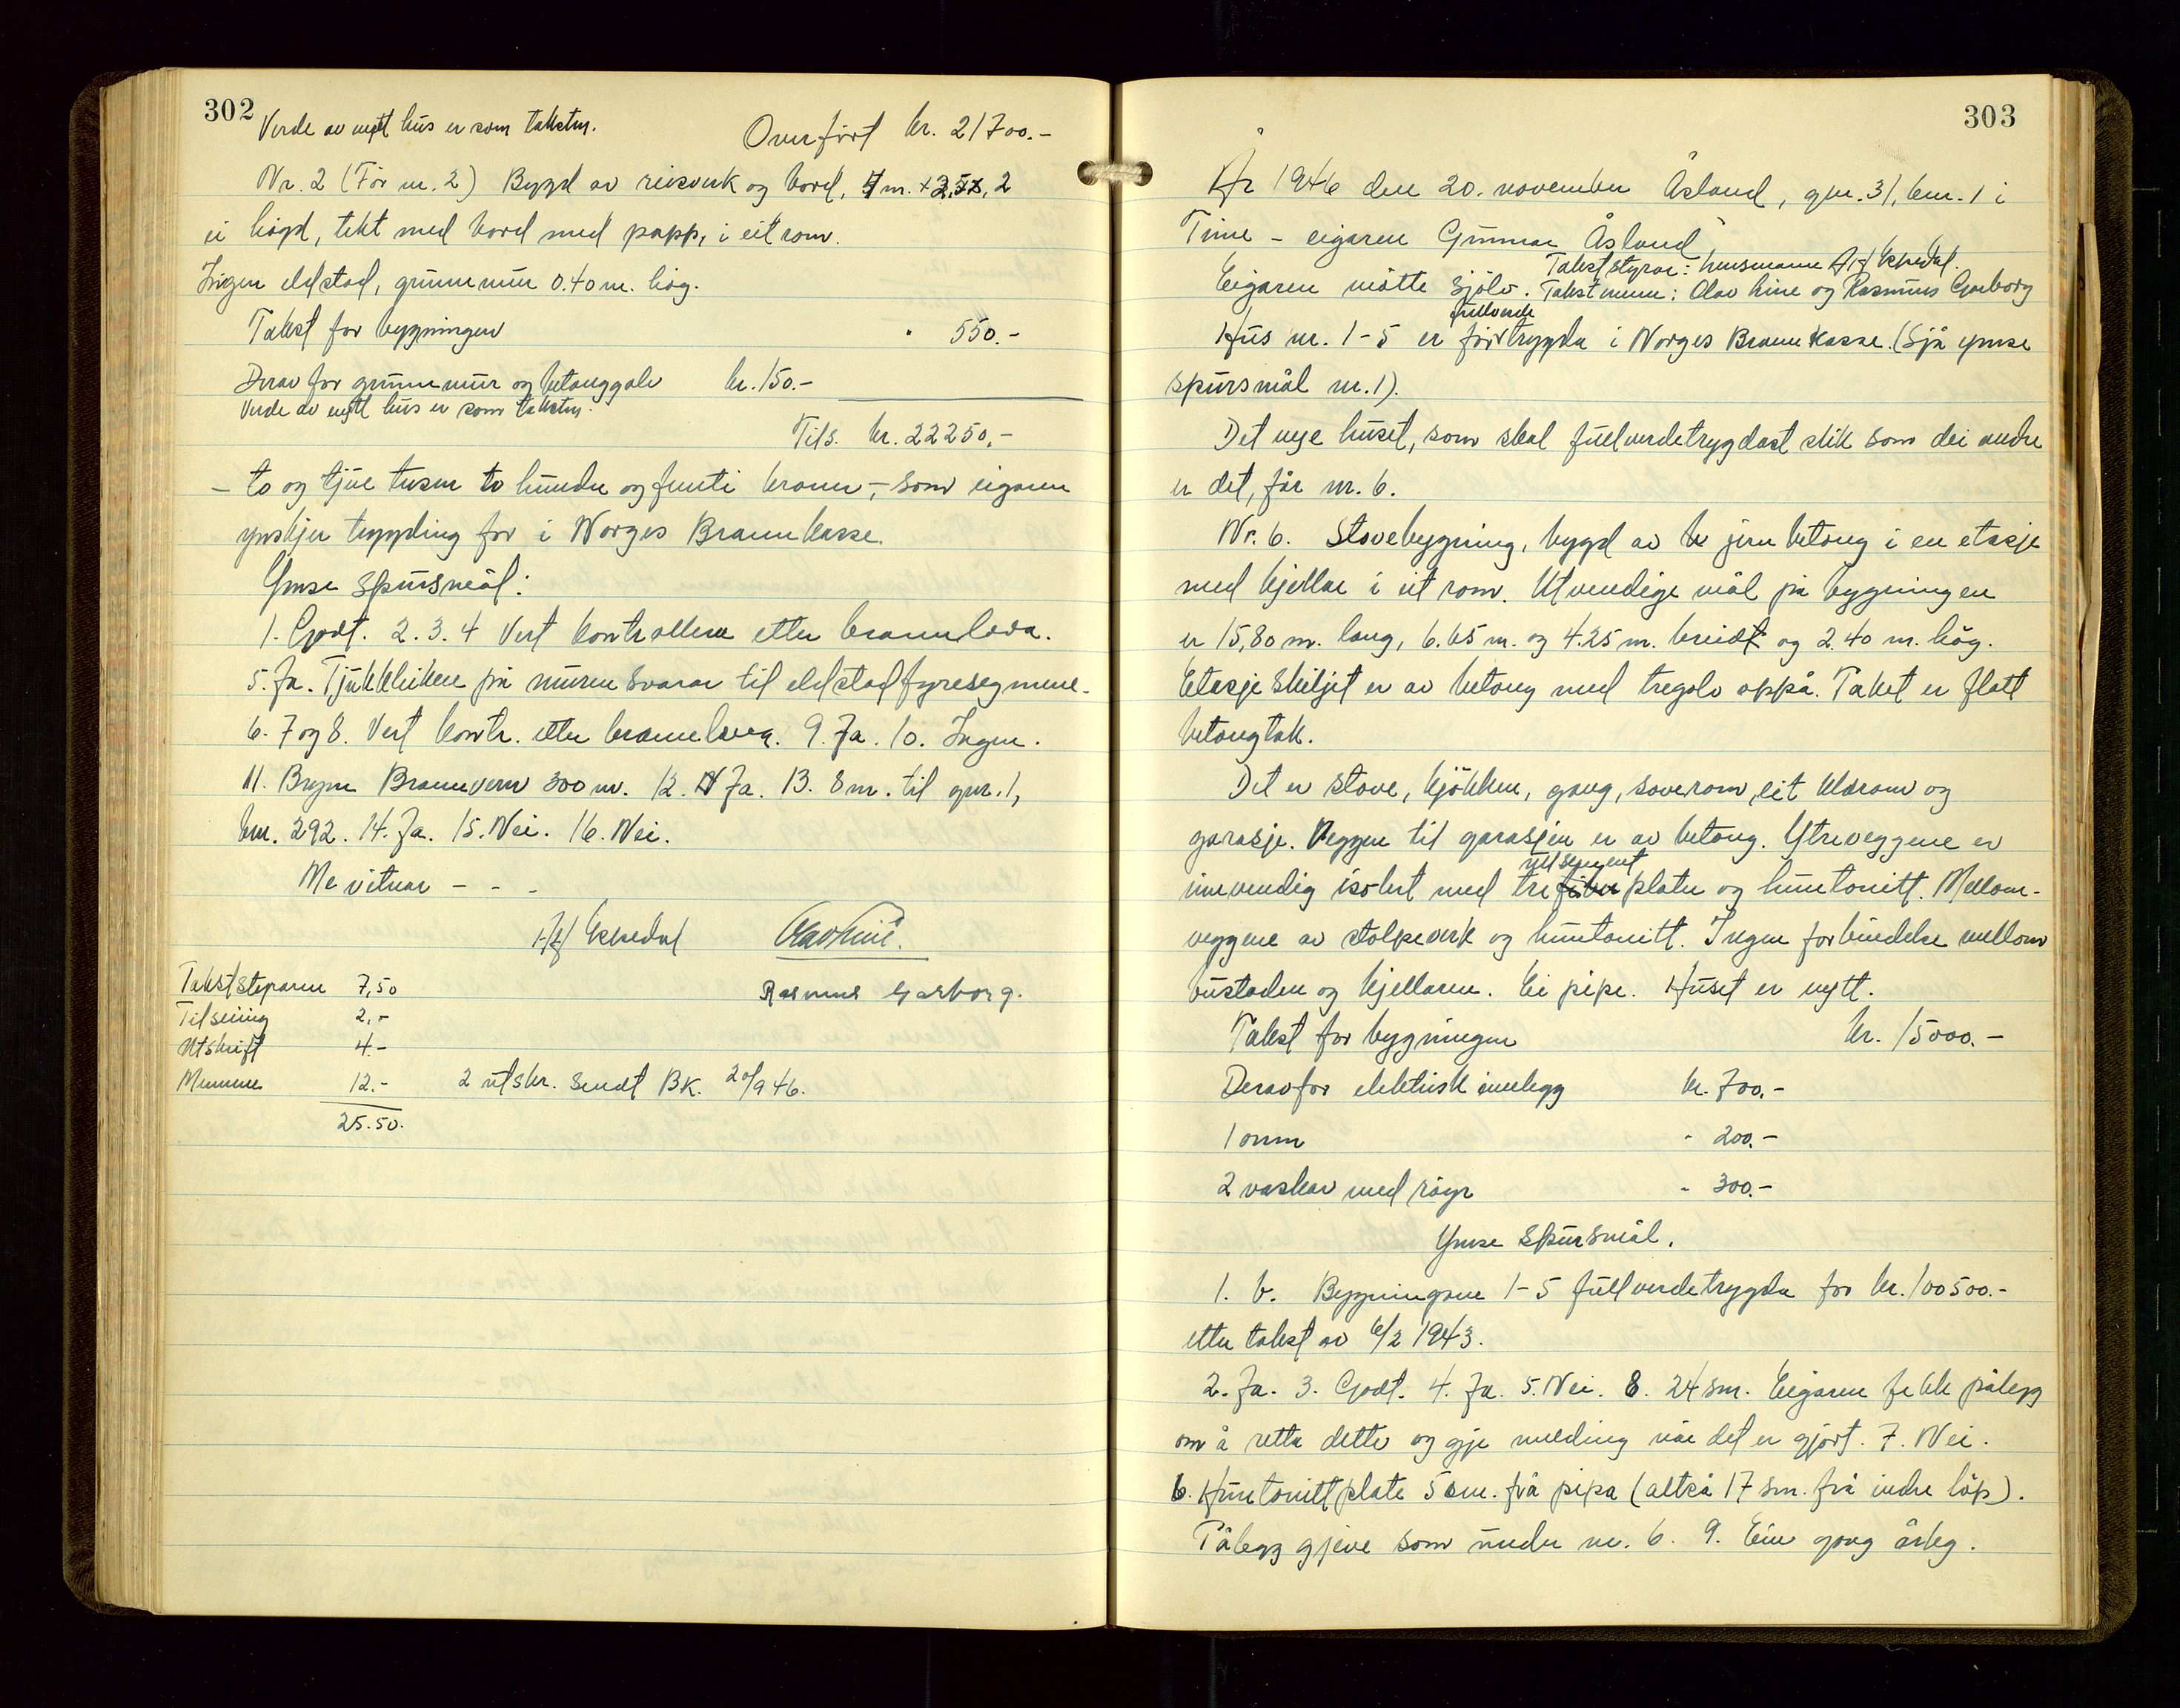 302
Verde av nytt hus er som taksten.
Overført kr. 21700.-
Nr. 2 (Før nr. 2) Bygd av reisverk og bord, 4 m. x 2,5 x, 2
ei høgd, tekt med bord med papp, i eit rom.
Ingen eldstad, grunnmur 0.40 m. høg.
Takst for bygningen " 550.-
Derav for grunnmur og betonggolv kr. 150.-
Verde av nytt hus er som taksten.
Tils. kr. 22250.-
- to og tjue tusen to hundre og femti kroner -, som eigaren
ynskjer trygding for i Norges Brannkasse.
Ymse spursmål:
1. Godt. 2. 3. 4 Vert kontrollera etter brannlova.
5. Ja. Tjukkleiken på muren svarar til eldstadfyresegnene.
6. 7 og 8. Vert kontr. etter brannlova. 9. Ja. 10. Ingen.
11. Bryne Brannvern 300 m. 12. Ja. 13. 8 m. til gnr. 1,
bnr. 292. 14. Ja. 15. Nei. 16. Nei.
Me vitnar - - -
Olav Line.
Rasmus Garborg.
Takststyraren 7,50
Tilseiing 2,-
Utskrift 4.-
Mennene 12.-
25.50.
2 utskr. sendt BK. 20/9 46.
303
År 1946 den 20. november Åsland, gnr. 31, bnr. 1 i
Time - eigaren Gunnar Åsland,
Takststyrar: lensmann Eskedal.
Eigaren møtte sjølv. Takstmenn: Olav Line og Rasmus Garborg
fullverde
Hus nr. 1-5 er førtrygda i Norges Brannkasse. (Sjå ymse
spursmål nr. 1).
Det nye huset, som skal fullverdetrygdast slik som dei andre
er det, får nr. 6.
Nr. 6. Stovebygning, bygd av jernbetong i en etasje
med kjellar i eit rom. Utvendige mål på bygningen
er 15,80 m. lang, 6.65 m. og 4.25 m. breidt og 2.40 m. høg.
Etasjeskiljet er av betong med tregolv oppå. Taket er flatt
betongtak.
Det er stove, kjøkken, gang, soverom, eit klårom og
garasje. Veggen til garasjen er av betong. Ytreveggene er
ullsement
innvendig isolert med trefiber plater og huntonitt. Mellom-
veggene av stolpeverk og huntonitt. Ingen forbindelse mellom
bustaden og kjellaren. Ei pipe. Huset er nytt.
Takst for bygningen kr. 15000.-
Derav for elektrisk innlegg kr. 700.-
1 omn " 200.-
2 vaskar med røyr " 300.-
Ymse spursmål.
1. b. Bygningane 1-5 fullverdetrygda for kr. 100500.-
etter takst av 6/2 1943.
2. Ja. 3. Godt. 4. Ja. 5. Nei. 8. 24 sm. Eigaren fekk pålegg
om å retta dette og gje melding når det er gjort. 7. Nei.
6. Huntonittplate 5 sm. frå pipa (altså 17 sm. frå indre løp).
Pålegg gjeve som under nr. 6. 9. Ein gong årleg.